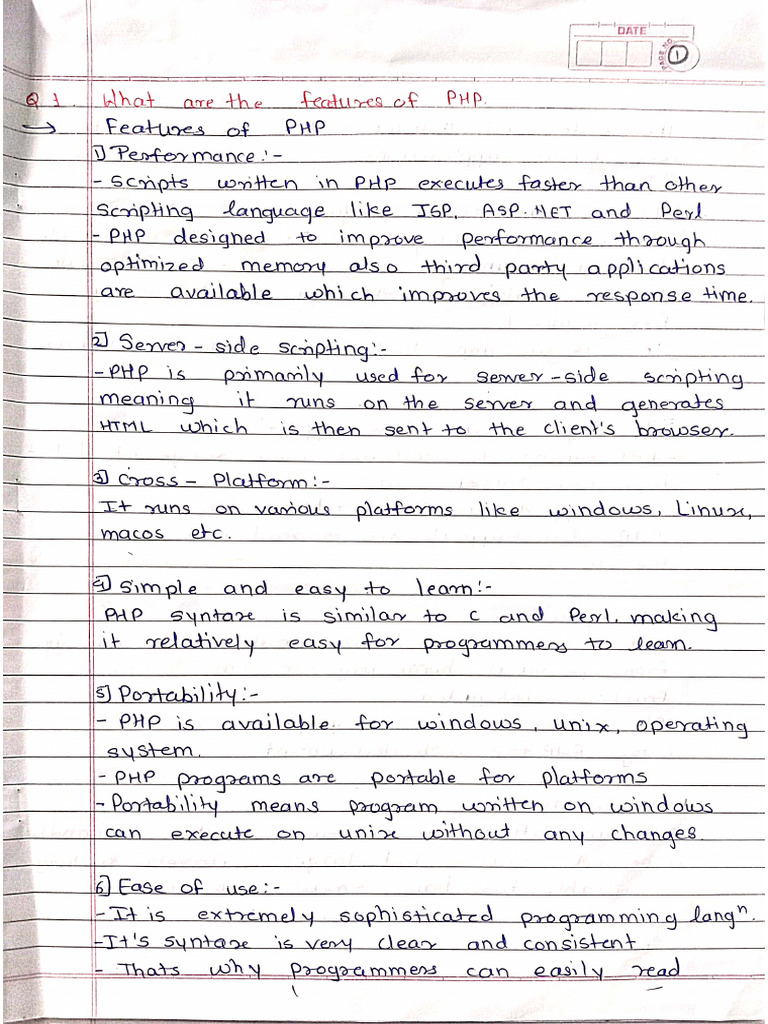 DATE
PAGE NO. 1
Q 1. What are the features of PHP.
→ Features of PHP
1) Performance:-
- Scripts written in PHP executes faster than other
scripting language like JSP, ASP.NET and Perl
- PHP designed to improve performance through
optimized memory also third party applications
are available which improves the response time.
2) Server-side scripting:-
- PHP is primarily used for server-side scripting
meaning it runs on the server and generates
HTML which is then sent to the client's browser.
3) Cross-Platform:-
It runs on various platforms like windows, Linux,
macos etc.
4) Simple and easy to learn:-
PHP syntax is similar to C and Perl, making
it relatively easy for programmers to learn.
5) Portability:-
- PHP is available for windows, unix, operating
system.
- PHP programs are portable for platforms
- Portability means program written on windows
can execute on unix without any changes.
6) Ease of use:-
- It is extremely sophisticated programming langⁿ.
- It's syntax is very clear and consistent.
- Thats why programmers can easily read